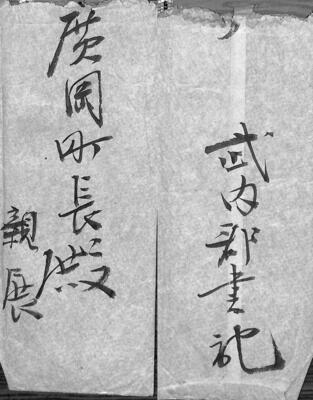 廣岡町長殿
親展
武内郡書記